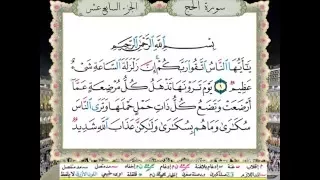 سورة الحج
الجزء السابع عشر
بِسْمِ اللَّهِ الرَّحْمَٰنِ الرَّحِيمِ
يَا أَيُّهَا النَّاسُ اتَّقُوا رَبَّكُمْ إِنَّ زَلْزَلَةَ السَّاعَةِ شَيْءٌ
عَظِيمٌ ١ يَوْمَ تَرَوْنَهَا تَذْهَلُ كُلُّ مُرْضِعَةٍ عَمَّا
أَرْضَعَتْ وَتَضَعُ كُلُّ ذَاتِ حَمْلٍ حَمْلَهَا وَتَرَى النَّاسَ
سُكَارَىٰ وَمَا هُم بِسُكَارَىٰ وَلَٰكِنَّ عَذَابَ اللَّهِ شَدِيدٌ